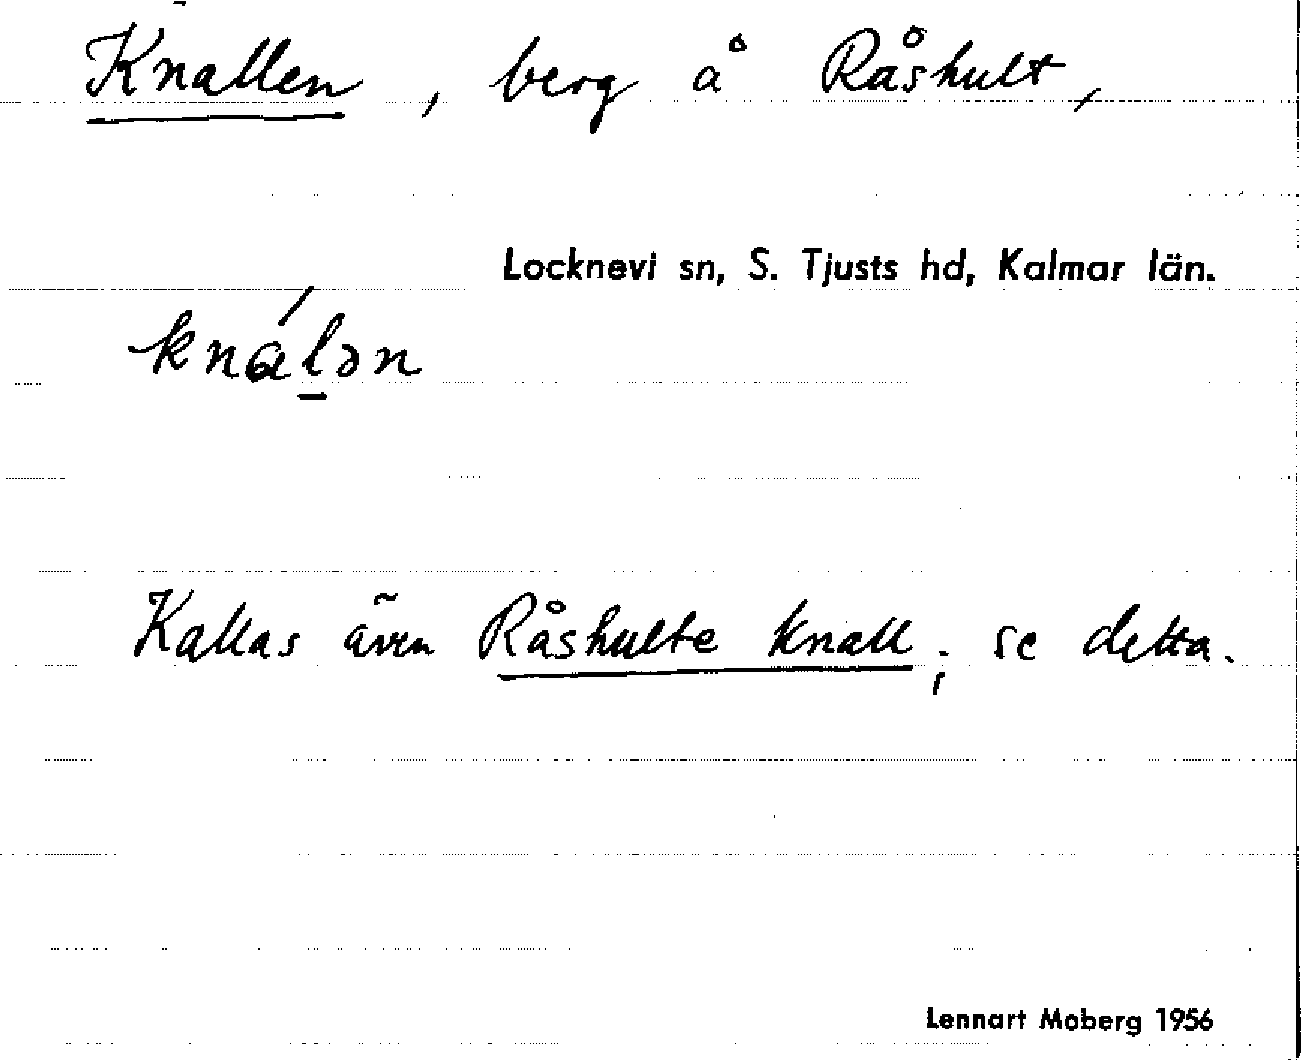 Knallen, berg å Råshult,
Locknevi sn, S. Tjusts hd, Kalmar län.
knálǝn
Kallas även Råshulte knall; se detta.
Lennart Moberg 1956